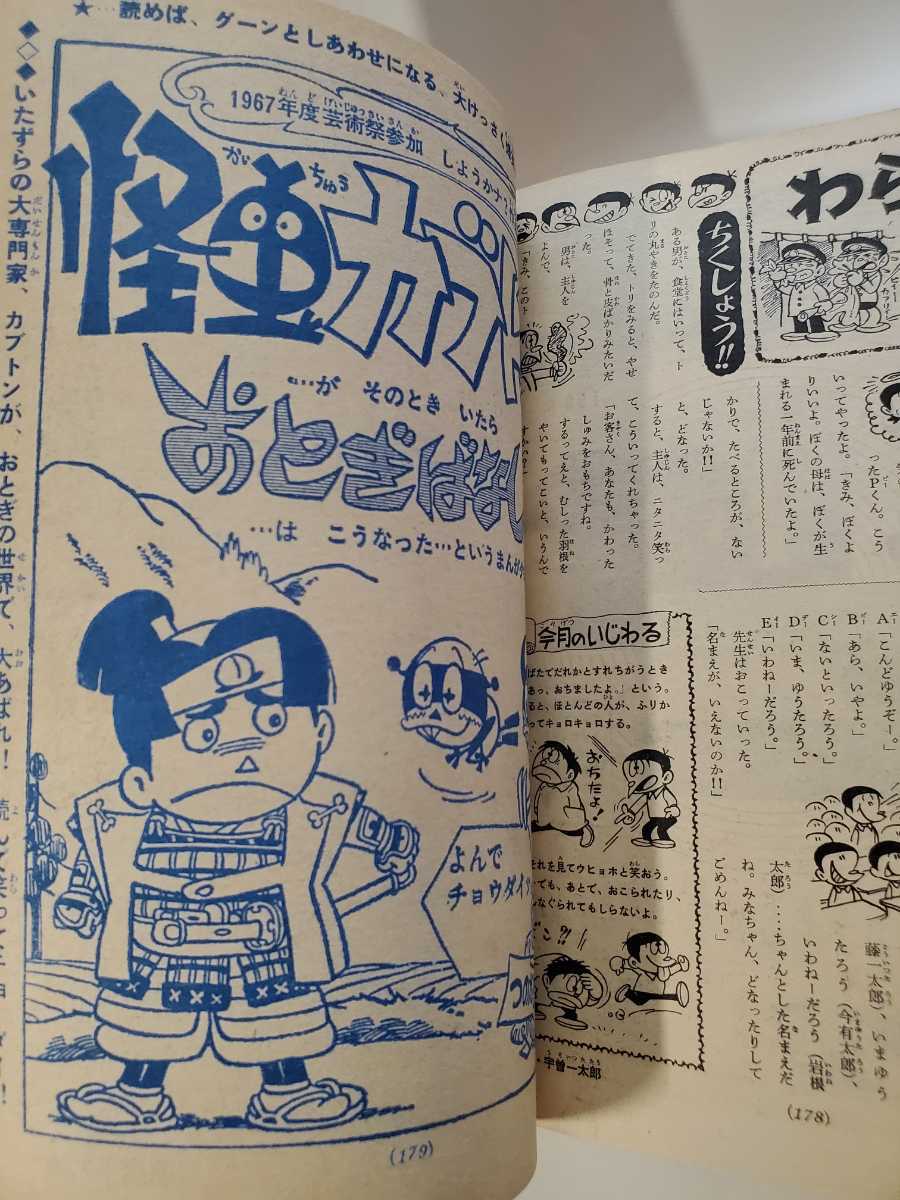 わら
ちくしょう!!
ある男が、食堂にはいって、ト
リの丸やきをたのんだ。
でてきた、トリをみると、やせ
ほそって、骨と皮ばかりみたいだ
った。
男は、主人を
よんで、
「きみ、このト
かりで、たべるところが、ない
じゃないか!!」
と、どなった。
すると、主人は、ニタニタ笑っ
て、こういってくれちゃった。
「お客さん、あなたも、かわった
しゅみをおもちですね。
するってえと、むしった羽根を
やいてもってこいと、いうんで
すかい?」
ったPくん。こう
いってやったよ。「きみ、ぼくよ
りいいよ。ぼくの母は、ぼくが生
まれる一年前に死んでいたよ。」
A「こんどゆうぞー。」
B「あら、いやよ。」
C「ないといったろう。」
D「いま、ゆうたろう。」
E「いわねーだろう。」
先生はおこっていった。
「名まえが、いえないのか!!」
藤一太郎)、いまゆう
たろう(今有太郎)、
いわねーだろう(岩根
太郎)‥‥ちゃんとした名まえだ
ね。みなちゃん、どなったりして
ごめんねー。」
今月のいじわる
ばたでだれかとすれちがうとき
あっ、おちましたよ。」という。
ると、ほとんどの人が、ふりか
ってキョロキョロする。
おちたよ!
それを見てウヒョホと笑おう。
いても、あとで、おこられたり、
なぐられてもしらないよ。
どこ?!
・宇曽一太郎
(178)
★…読めば、グーンとしあわせになる、大けっさく
◆◇◆いたずらの大専門家、カブトンが、おとぎの世界で、大あばれ!
1967年度芸術祭参加 しようかナ
怪虫カブト
…が そのとき いたら
おとぎばなし
…は こうなった…というまんが
よんで
チョウダイ
(179)